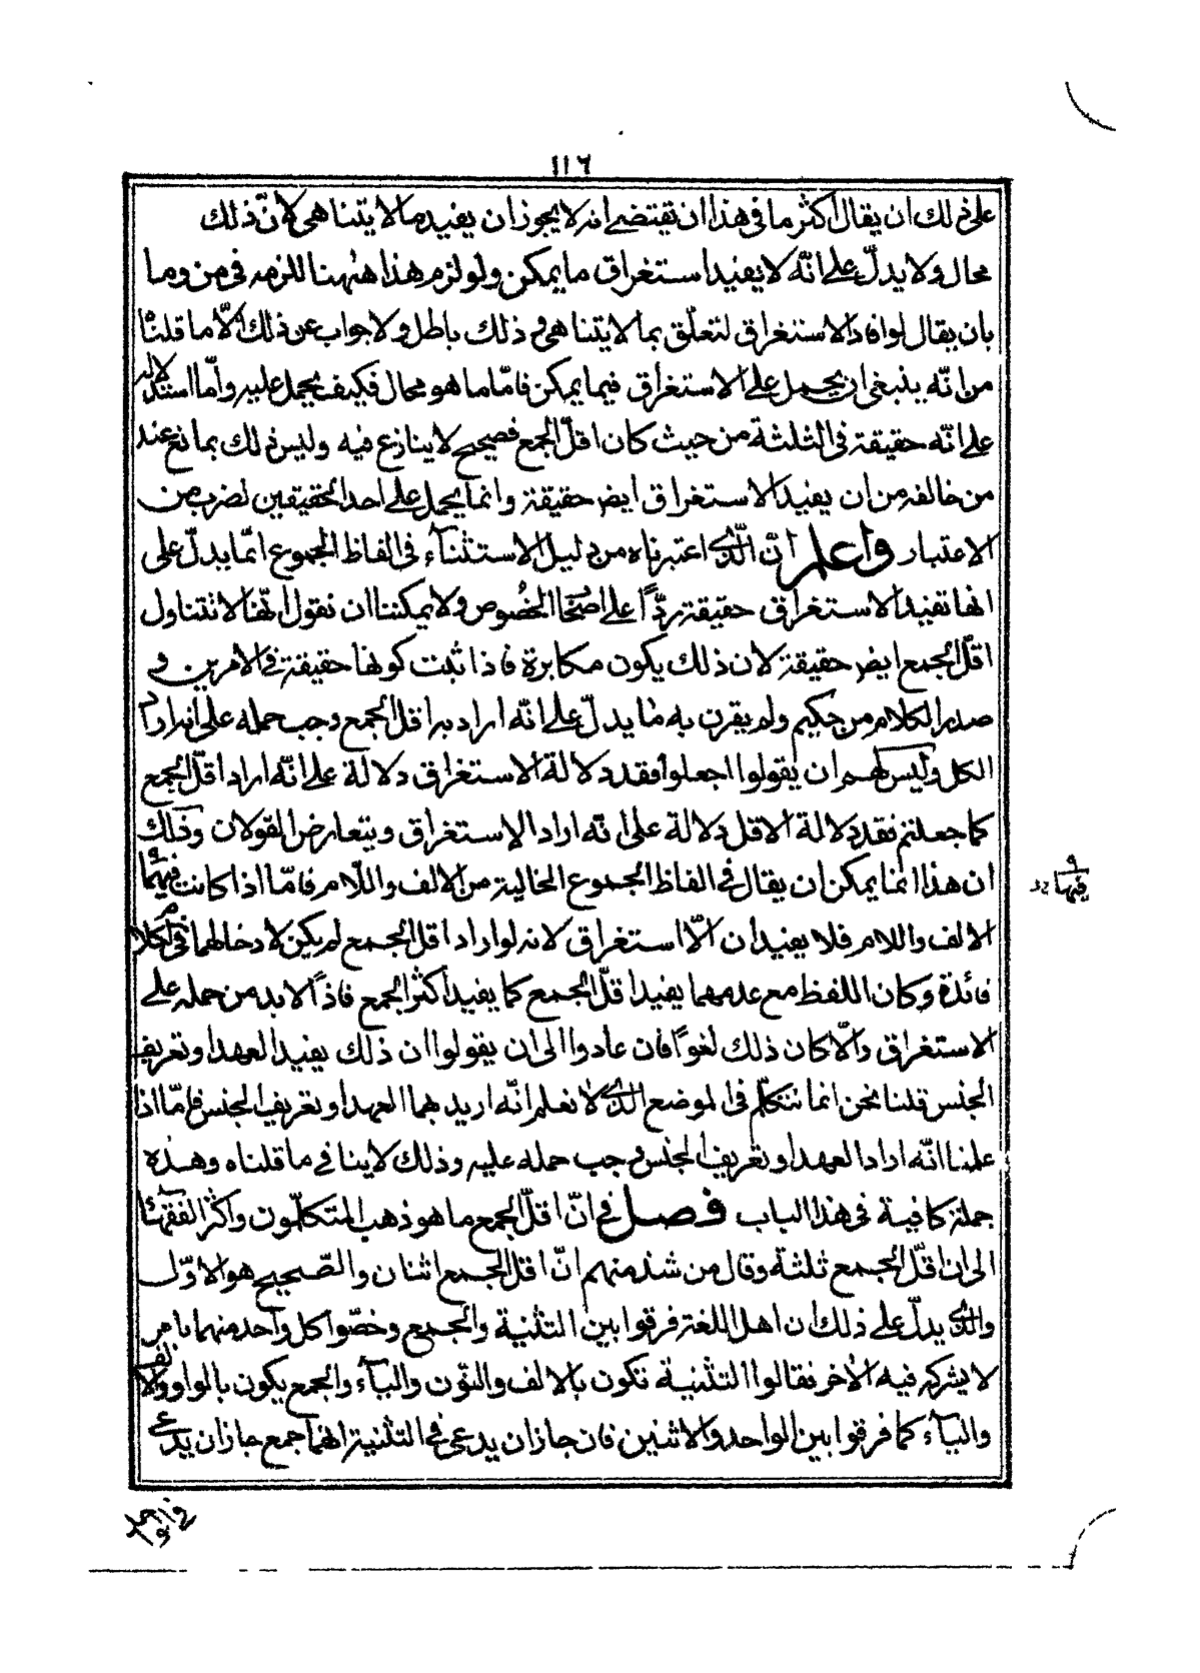 ١١٦
على ذلك ان يقال اكثر ما فى هذا ان يقتضى انه لا يجوز ان يفيد ما لا يتناهى لانّ ذلك
محال ولا يدلّ على انّه لا يفيد استغراق ما يمكن ولو لزم هذا هٰهنا للزمه فى من وما
بان يقال لو افاد الاستغراق لتعلّق بما لا يتناهى وذلك باطل ولا جواب عن ذلك الّا ما قلنا
من انّه ينبغى ان يحمل على الاستغراق فيما يمكن فامّا ما هو محال فكيف يحمل عليه وأمّا استدلاله
على انّه حقيقة فى الثلثة من حيث كان اقلّ الجمع فصحيح لا ينازع فيه وليس ذلك بمانع عند
من خالفه من ان يفيد الاستغراق ايض حقيقة وانما يحمل على احد الحقيقتين لضرب من
الاعتبار واعلم انّ الّذى اعتبرناه من دليل الاستثنآء فى الفاظ الجموع انّما يدلّ على
انها تفيد الاستغراق حقيقة ردًّا على اصحٰاب الخصوص ولا يمكننا ان نقول انّها لا تتناول
اقلّ الجمع ايض حقيقة لان ذلك يكون مكابرة فاذا ثبت كونها حقيقة فى الامرين و
صدر الكلام من حكيم ولم يقرن به ما يدلّ على انّه اراد به اقل الجمع وجب حمله على انه اراد به
الكل وليس لهم ان يقولوا اجعلوا فقد دلالة الاستغراق دلالة على انّه اراد اقلّ الجمع
كما جعلتم فقد دلالة الاقل دلالة على انّه اراد الاستغراق ويتعارض القولان وذلك
ان هذا انما يمكن ان يقال فى الفاظ الجموع الخالية من الالف واللّام فامّا اذا كانت فيهما
فيها خد
الالف واللام فلا يفيدان الّا استغراق لانه لو اراد اقل الجمع لم يكن لادخالهما فى الكلام
فائدة وكان اللفظ مع عدمهما يفيد اقلّ الجمع كما يفيد اكثر الجمع فاذًا لا بد من حمله على
الاستغراق والّا كان ذلك لغوًا فان عادوا الى ان يقولوا ان ذلك يفيد العهد او تعريف
الجنس قلنا نحن انما نتكلّم فى الموضع الذى لا نعلم انّه اريد بهما العهد او تعريف الجنس فامّا اذا
علمنا انّه اراد العهد او تعريف الجنس وجب حمله عليه وذلك لا ينافى ما قلناه وهذه
جملة كافية فى هذا الباب فصل فى انّ اقلّ الجمع ما هو ذهب المتكلّمون واكثر الفقهآء
الى ان اقلّ الجمع ثلثة وقال من شذ منهم انّ اقل الجمع اثنان والصّحيح هو الاوّل
والّذى يدلّ على ذلك ان اهل اللغة فرقوا بين التثنية والجمع وخصّوا كل واحد منهما بامر
لا يشركه فيه الأخر فقالوا التثنية تكون بالالف والنّون واليآء والجمع يكون بالواو والالف
واليآء كما فرقوا بين الواحد والاثنين فان جاز ان يدعى فى التثنية انهما جمع جاز ان يدعى